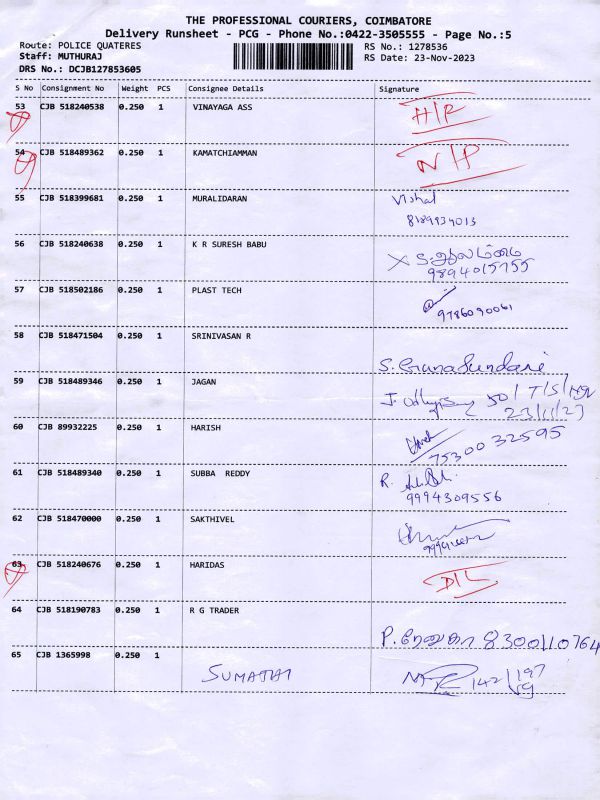 THE PROFESSIONAL COURIERS, COIMBATORE
Delivery Runsheet - PCG - Phone No.:0422-3505555 - Page No.:5
Route: POLICE QUATERES RS No.: 1278536
Staff: MUTHURAJ RS Date: 23-Nov-2023
DRS No.: DCJB127853605
S No Consignment No Weight PCS Consignee Details Signature
53 CJB 518240538 0.250 1 VINAYAGA ASS
54 CJB 518489362 0.250 1 KAMATCHIAMMAN N/P
55 CJB 518399681 0.250 1 MURALIDARAN Vishal
8189934013
56 CJB 518240638 0.250 1 K R SURESH BABU
9894015755
57 CJB 518502186 0.250 1 PLAST TECH
9786090061
58 CJB 518471504 0.250 1 SRINIVASAN R
S. Gunasundari
59 CJB 518489346 0.250 1 JAGAN
23/11/23
60 CJB 89932225 0.250 1 HARISH
7530032595
61 CJB 518489340 0.250 1 SUBBA REDDY R.
9994309556
62 CJB 518470000 0.250 1 SAKTHIVEL
63 CJB 518240676 0.250 1 HARIDAS D/L
64 CJB 518190783 0.250 1 R G TRADER
P. ரேணுகா 8300110764
65 CJB 1365998 0.250 1
SUMATHI